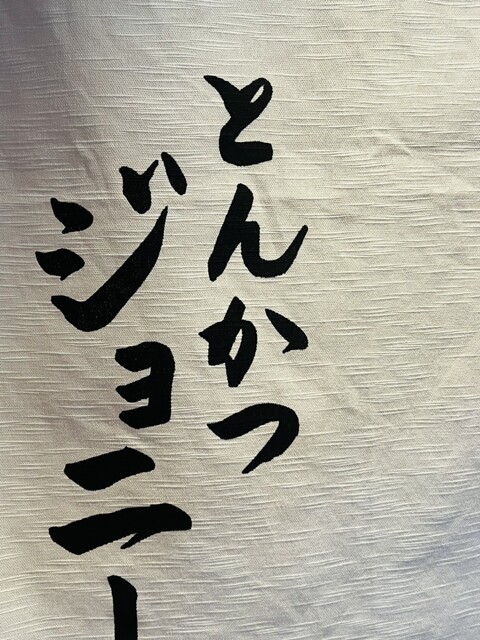 とんかつ
ジョニー